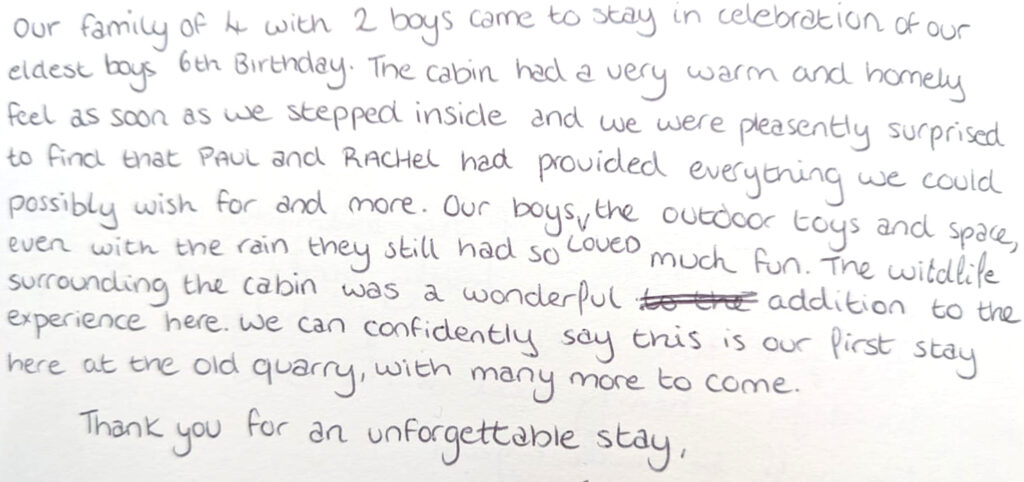 Our family of 4 with 2 boys came to stay in celebration of our
eldest boys 6th Birthday. The cabin had a very warm and homely
feel as soon as we stepped inside and we were pleasently surprised
to find that PAUL and RACHel had provided everything we could
possibly wish for and more. Our boys LOVED the outdoor toys and space,
even with the rain they still had so much fun. The wildlife
surrounding the cabin was a wonderful to the addition to the
experience here. We can confidently say this is our first stay
here at the old quarry, with many more to come.
Thank you for an unforgettable stay,